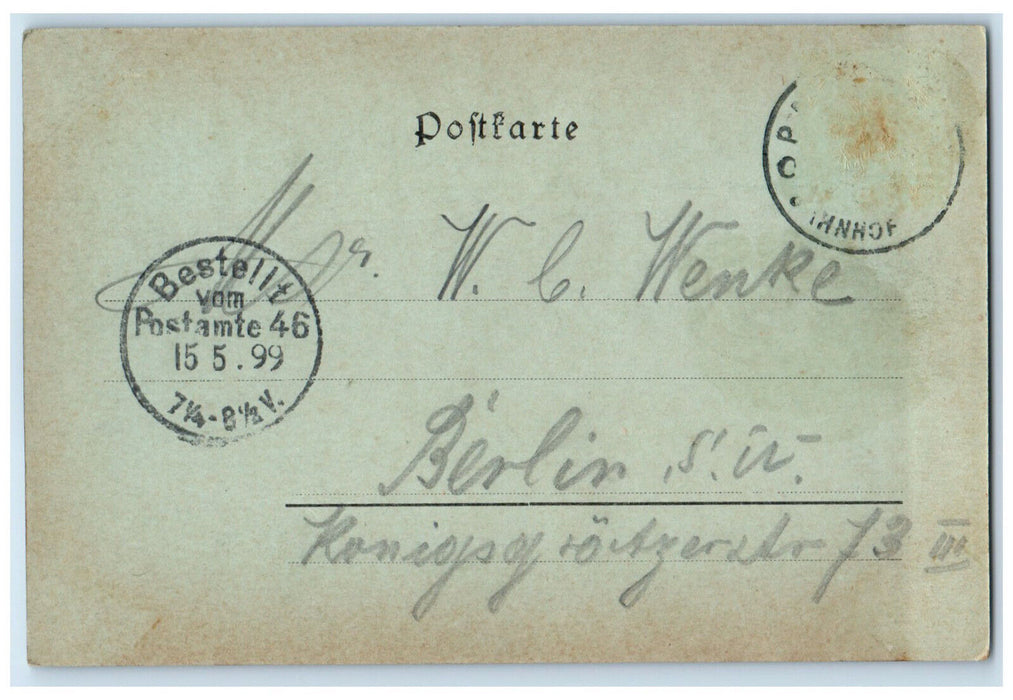 Postkarte
BAHNHOF
Mr. W. C. Wenke
Bestellt
vom
Postamte 46
15 5.99
7¼-8½V.
Berlin S.W.
Königsgrätzerstr 73 III